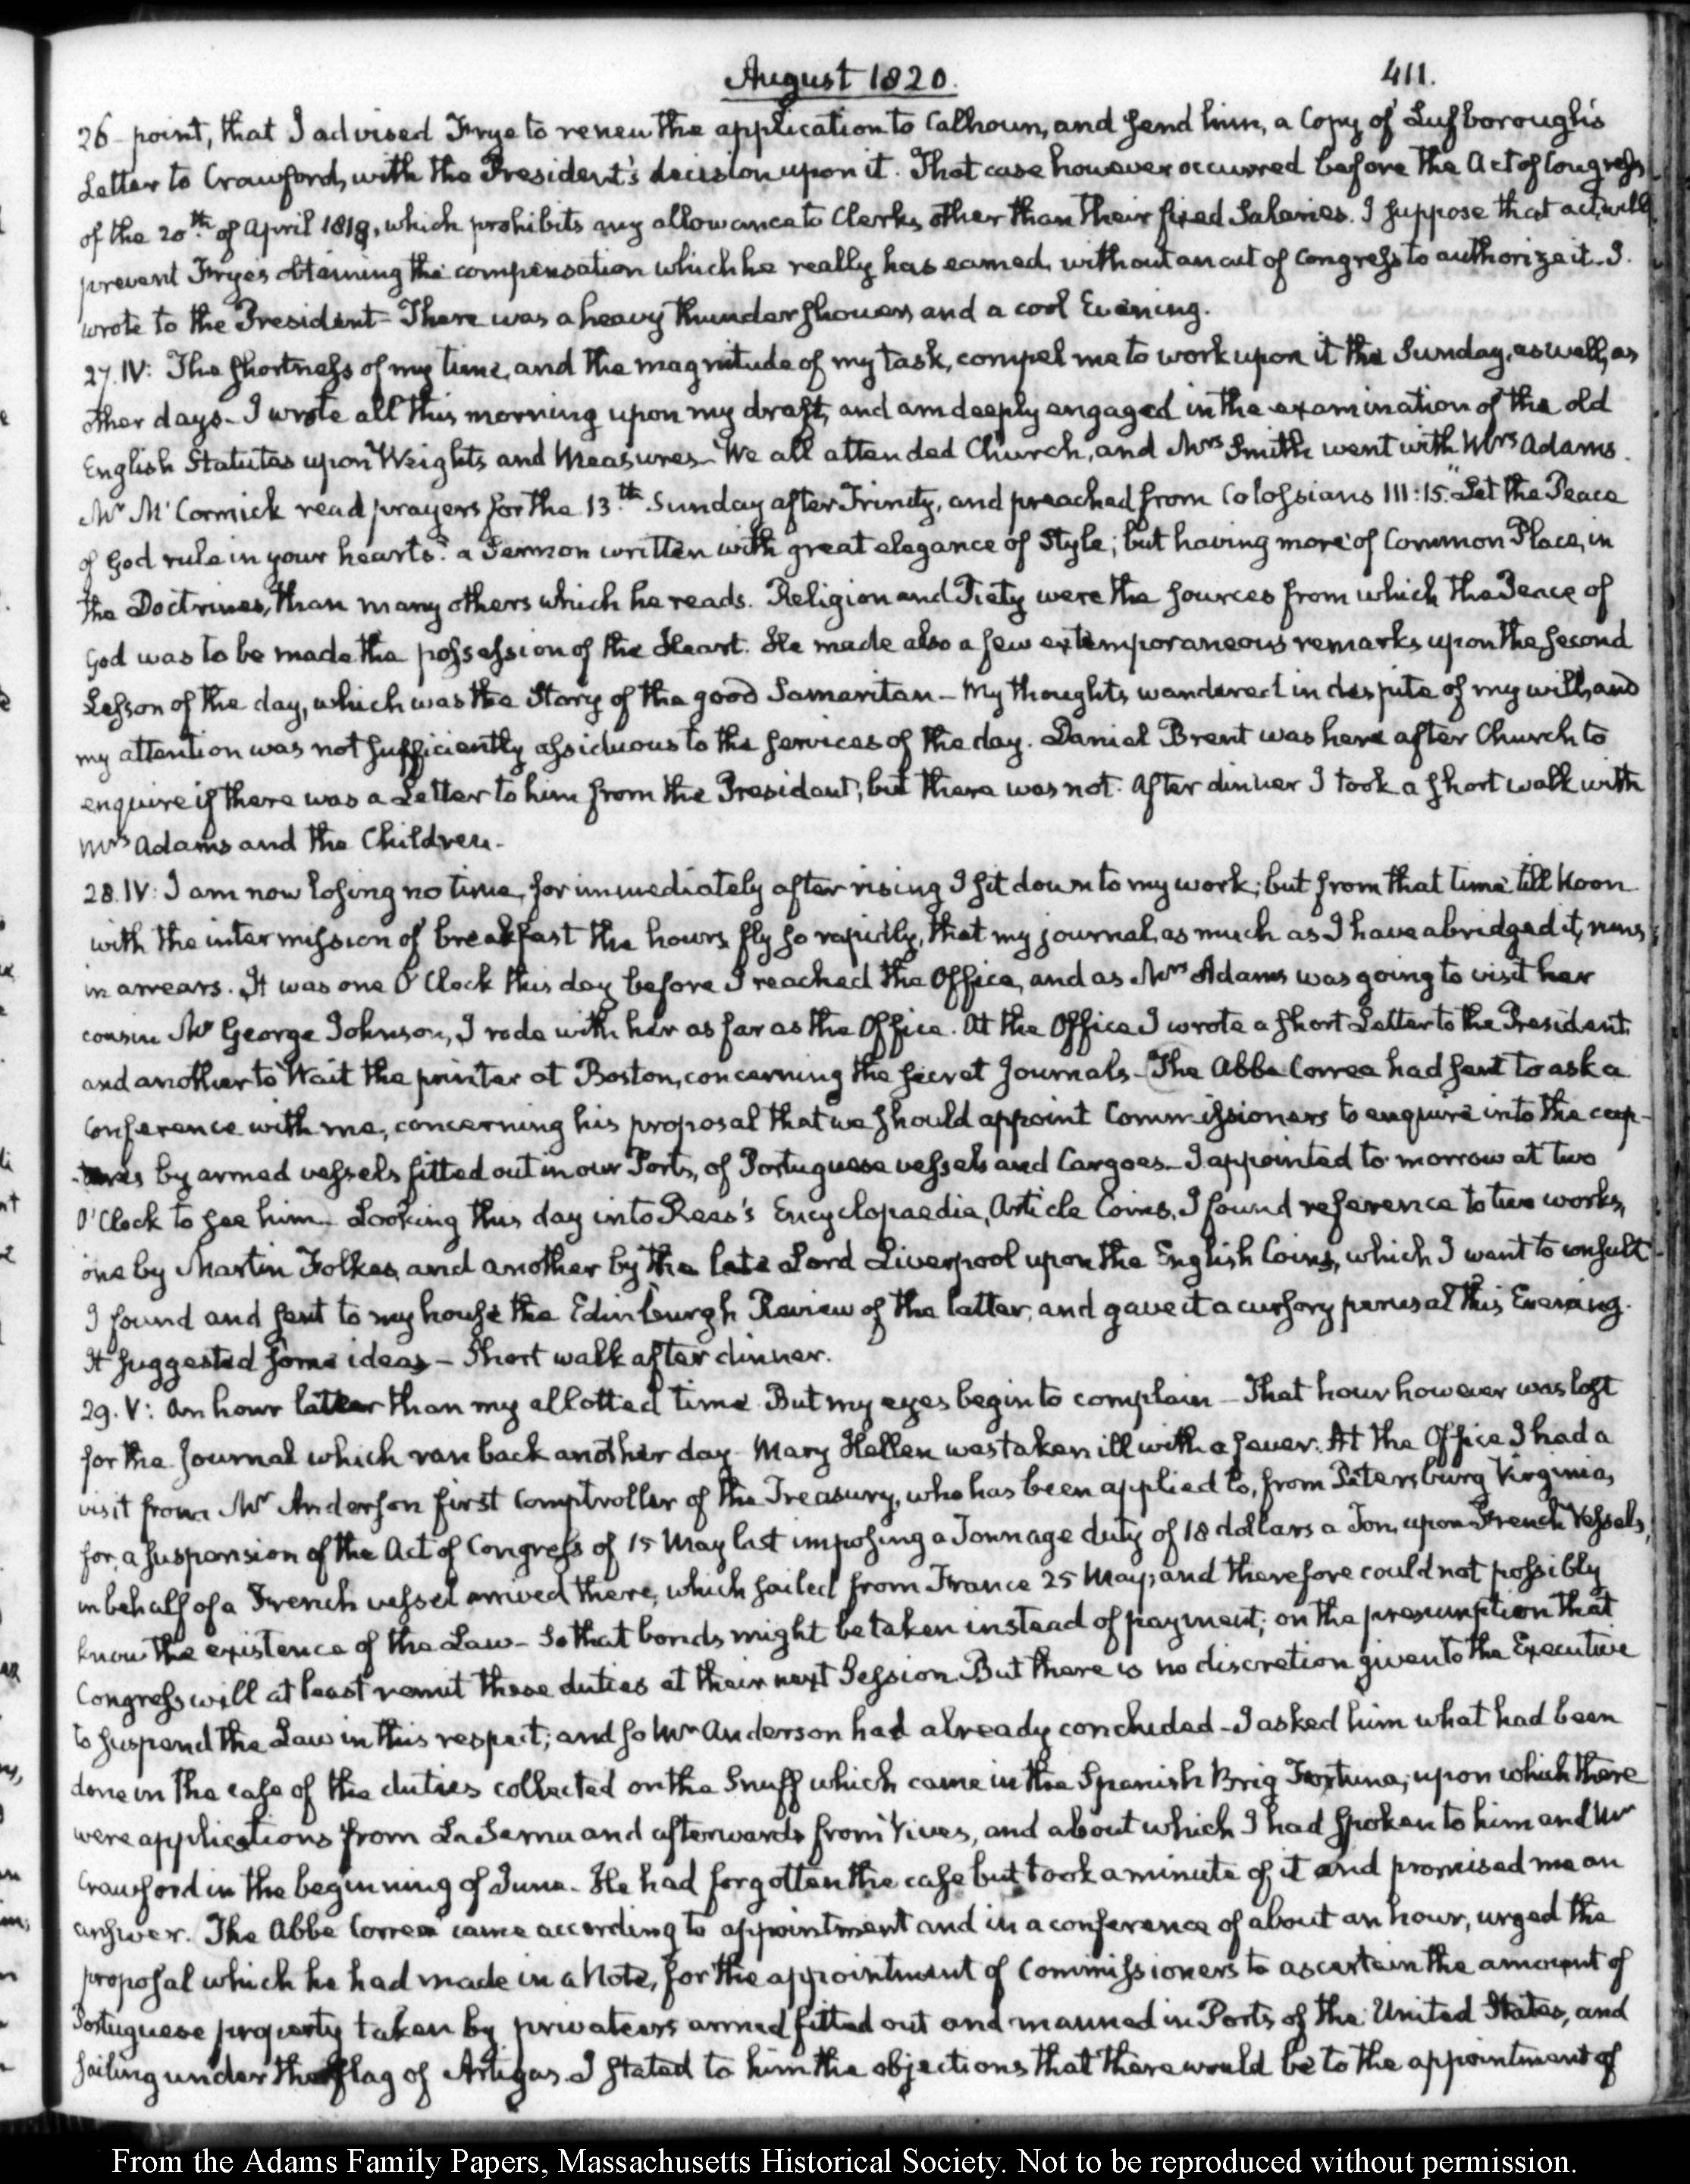 August 1820.
411.
26 – point, that I advised Frye to renew the application to Calhoun, and send him, a Copy of Lufborough's
Letter to Crawford, with the President's decision upon it. That case however occurred before the Act of Congress
of the 20th. of April 1818, which prohibits any allowance to Clerks, other than their fixed Salaries. I suppose that act, will
prevent Frye's obtaining the compensation which he really has earned, without an act of Congress to authorize it. I
wrote to the President – There was a heavy thunder shower, and a cool Evening.
27. IV: The shortness of my time, and the magnitude of my task, compel me to work upon it the Sunday, as well, as
other days – I wrote all this morning upon my draft, and am deeply engaged in the examination of the old
English Statutes upon Weights and Measures – We all attended Church, and Mrs Smith went with Mrs Adams.
Mr McCormick read prayers for the 13th. Sunday after Trinity, and preached from Colossians III:15. "Let the Peace
of God rule in your hearts." a Sermon written with great elegance of Style; but having more of Common Place, in
the Doctrines, than many others which he reads. Religion and Piety were the sources from which the Peace of
God was to be made the possession of the Heart. He made also a few extemporaneous remarks upon the second
Lesson of the day, which was the Story of the good Samaritan – My thoughts wandered in despite of my will, and
my attention was not sufficiently assiduous to the services of the day. Daniel Brent was here after Church to
enquire if there was a Letter to him from the President; but there was not. After dinner I took a short walk with
Mrs Adams and the Children –
28. IV: I am now losing no time, for immediately after rising I sit down to my work; but from that time till Noon
with the intermission of breakfast the hours fly so rapidly, that my journal, as much as I have abridged it, runs
in arrears. It was one O'Clock this day before I reached the Office, and as Mrs Adams was going to visit her
cousin Mr George Johnson, I rode with her as far as the Office. At the Office I wrote a short Letter to the President,
and another to Wait the printer at Boston, concerning the secret Journals – The Abbe Correa had sent to ask a
conference with me, concerning his proposal that we should appoint Commissioners to enquire into the cap-
-tures by armed vessels fitted out in our Ports, of Portuguese vessels and Cargoes – I appointed to morrow at two
O'Clock to see him – Looking this day into Rees's Encyclopaedia, Article Coins, I found reference to two works,
one by Martin Folkes, and another by the late Lord Liverpool upon the English Coins, which I want to consult
I found and sent to my house the Edinburgh Review of the latter, and gave it a cursory perusal this Evening.
It suggested some ideas – Short walk after dinner.
29. V: An hour later than my allotted time. But my eyes begin to complain – That hour however was lost
for the Journal which ran back another day – Mary Hellen was taken ill with a fever. At the Office I had a
visit from Mr Anderson first Comptroller of the Treasury, who has been applied to, from Petersburg Virginia,
for, a suspension of the Act of Congress of 15 May last imposing a Tonnage duty of 18 dollars a Ton, upon French Vessels,
in behalf of a French vessel arrived there, which sailed from France 25 May, and therefore could not possibly
know the existence of the Law – So that bonds might be taken instead of payment; on the presumption that
Congress will at least remit these duties at their next Session. But there is no discretion given to the Executive
to suspend the Law in this respect; and so Mr Anderson had already concluded – I asked him what had been
done in the case of the duties collected on the Snuff which came in the Spanish Brig Fortuna; upon which there
were applications from La Serna and afterwards from Vives, and about which I had spoken to him and Mr
Crawford in the beginning of June. He had forgotten the case but took a minute of it and promised me an
answer. The Abbe Correa came according to appointment and in a conference of about an hour, urged the
proposal which he had made in a Note, for the appointment of Commissioners to ascertain the amount of
Portuguese property taken by privateers armed fitted out and manned in Ports of the United States, and
sailing under the flag of Artigas. I stated to him the objections that there would be to the appointment of
From the Adams Family Papers, Massachusetts Historical Society. Not to be reproduced without permission.